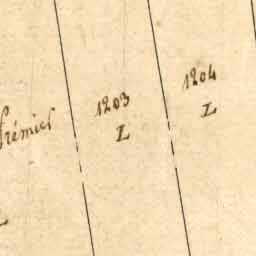 1203
L
1204
L
frémier